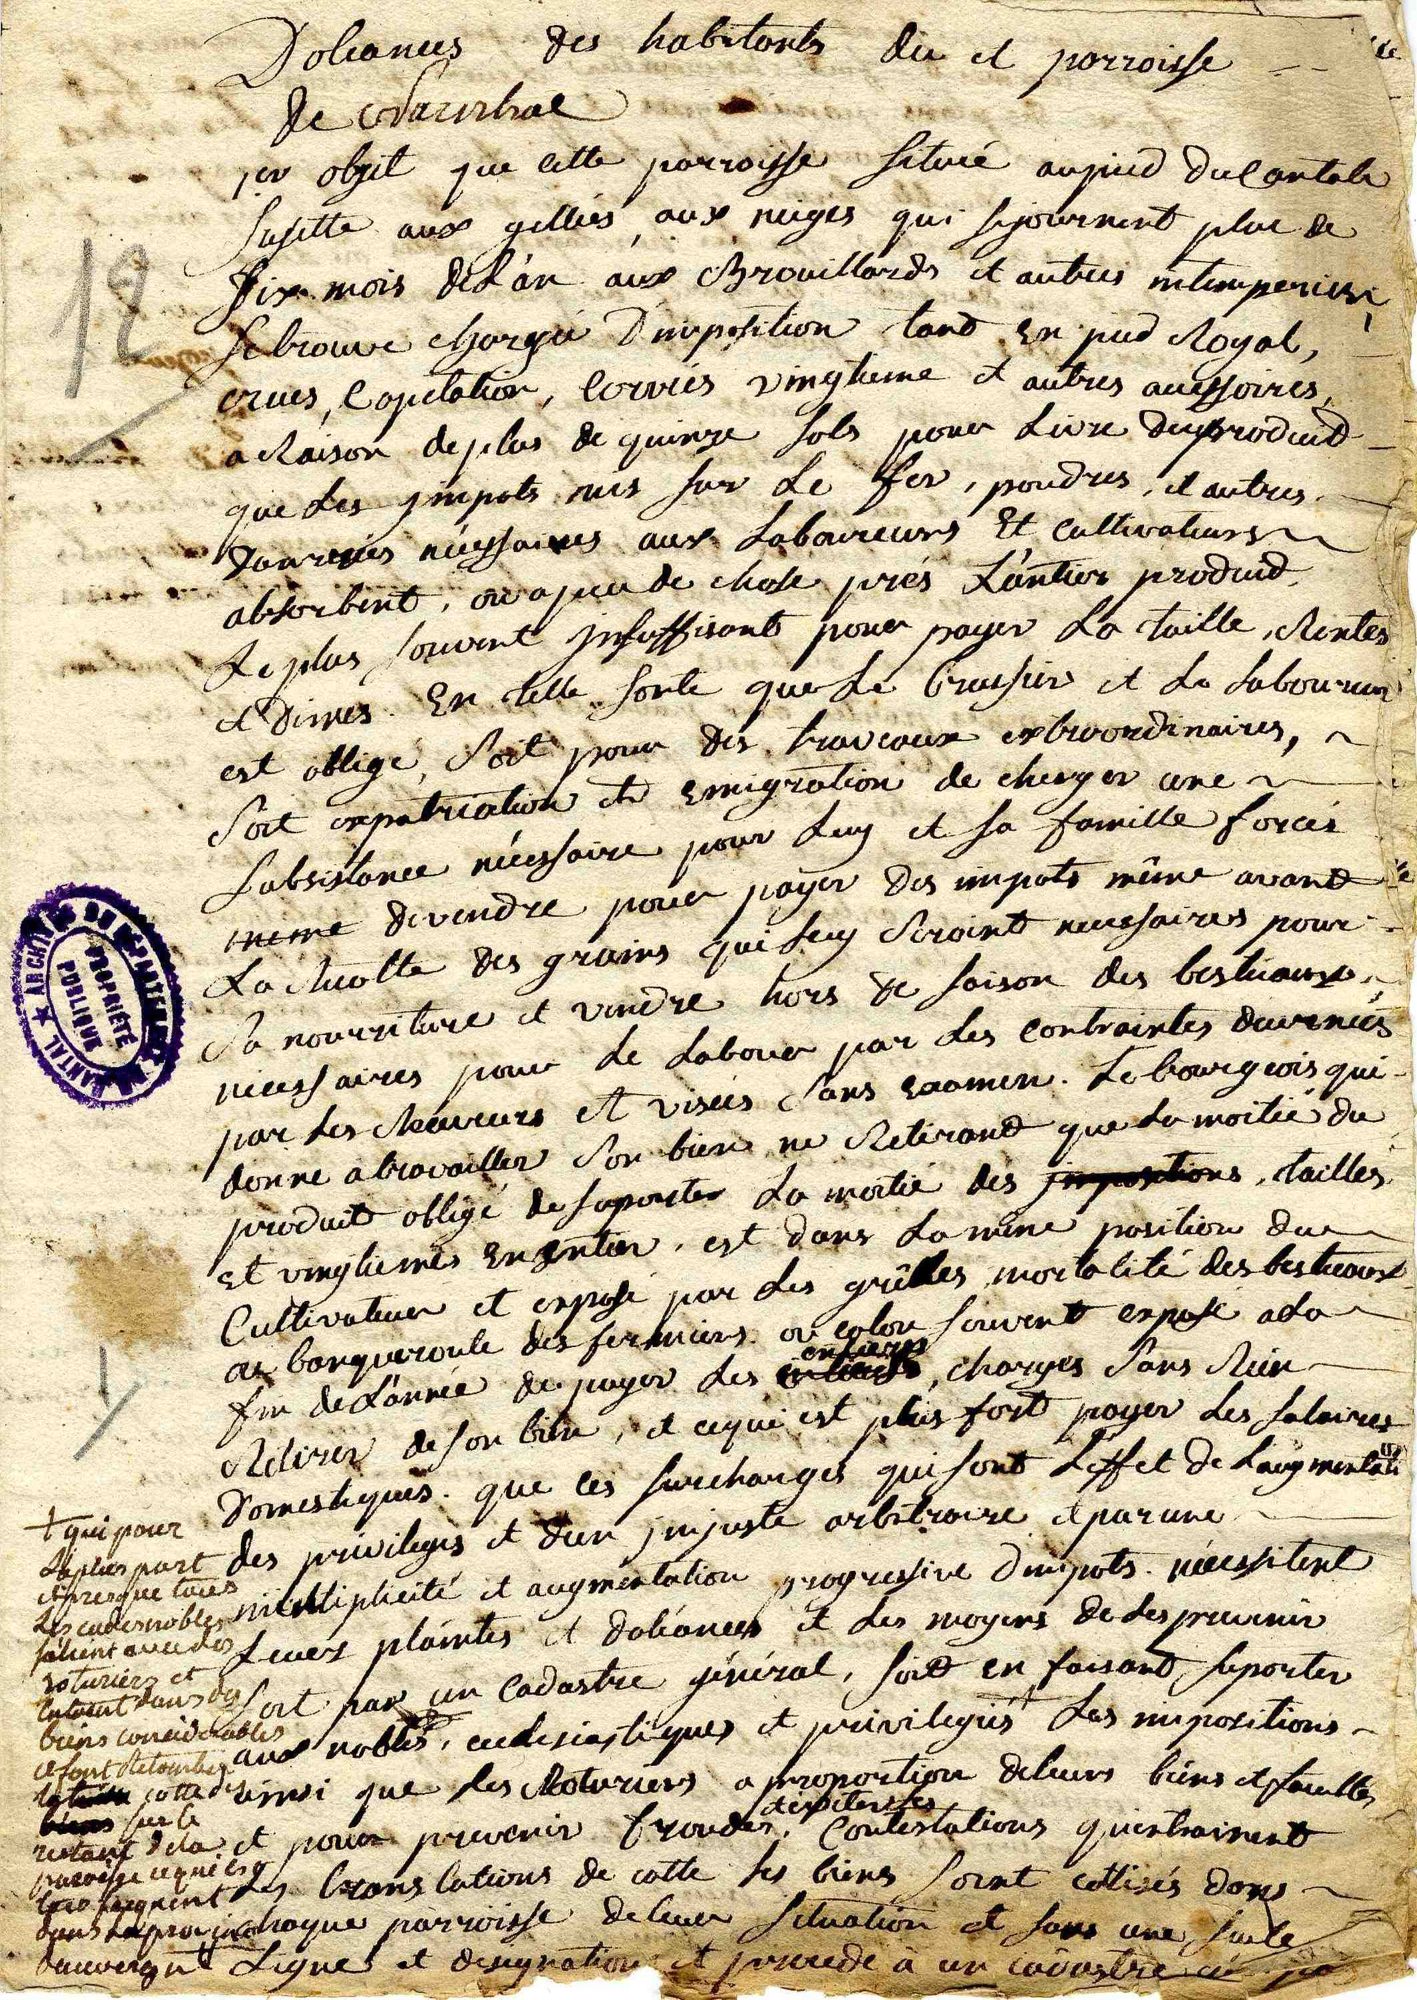 Doleances des habitants du et parroisse
de
1er objet que cette parroisse située aupied du Cantal
sujette aux gellées, aux neiges qui sejournent plus de
six mois de L'an aux Brouillards et autres intemperies,
se trouve chargée d'imposition tant En pied Royal,
crues, Capitation, Corvées vingtieme et autres accessoires,
a Raison de plus de quinze sols pour Livre du produit
que Les jmpots mis sur Le fer, poudres, et autres
danrées nécessaires aux Laboureurs Et Cultivateurs
absorbent, ou a peu de chose prés L'antier produit
Le plus souvent jnsuffisant pour payer La taille, Rentes
et Dimes. En telle sorte que Le brassier et Le Laboureur
est obligé, Soit pour des travaux extraordinaires,
Soit expatriation et Emigration de cherger une
subsistance nécessaire pour Luy et sa famille forcés
meme de vendre pour payer des impots même avant
La Recolte des grains qui Luy Seroint necessaires pour
Sa nourriture et vendre hors de saison des bestiaux
nécessaires pour Le Labour par des contraintes décernées
par Les Receveurs et visées sans Examen. Le bourgeois qui
donne a travailler Son bien ne Retirant que La moitié du
produit obligé de suporter La moitié des jmpositions, tailles
Et vingtiemes En Entier, est dans La même position du
Cultivateur et exposé par Les grêlles, mortalité des bestiaux
banqueroute des fermiers ou colon souvent exposé a La
fin de L'année de payer Les
entieres
charges Sans Rien
Retirer de son bien, et ce qui est plus fort payer Les salaires
Domestiques. que ces surcharges qui sont L'effet de L'augmentation
des privileges et d'un jnjuste arbitraire et par une
multiplicité et augmentation progressive d'impots. nécessitent
Leurs plaintes et doléances et Les moyens de Les prevenir
Soit par un Cadastre général, soit en faisant suporter
aux nobles, ecclesiastiques et privilegiés + Les impositions
ainsi que Les Roturiers a proportion de leurs biens et facultés
et pour prevenir fraudes,
Contestations qu'entrainent
Les translations de cotte Les biens soint cottisés dans
chaque parroisse de leur situation et sous une seule
Ligne et designation et procede à un cadastre
+ qui pour
La plus part
et presque tous
Les cadets nobles
s'alient avec des
roturiers et
Entrent dans des
biens considerables
et font Retomber
cotte des
biens sur le
restant de la
paroisse ce qui est
tres frequent
dans La province
d'auvergne
12
ARCHIVES DU DEPARTEMENT DU CANTAL
PROPRIÉTÉ
PUBLIQUE